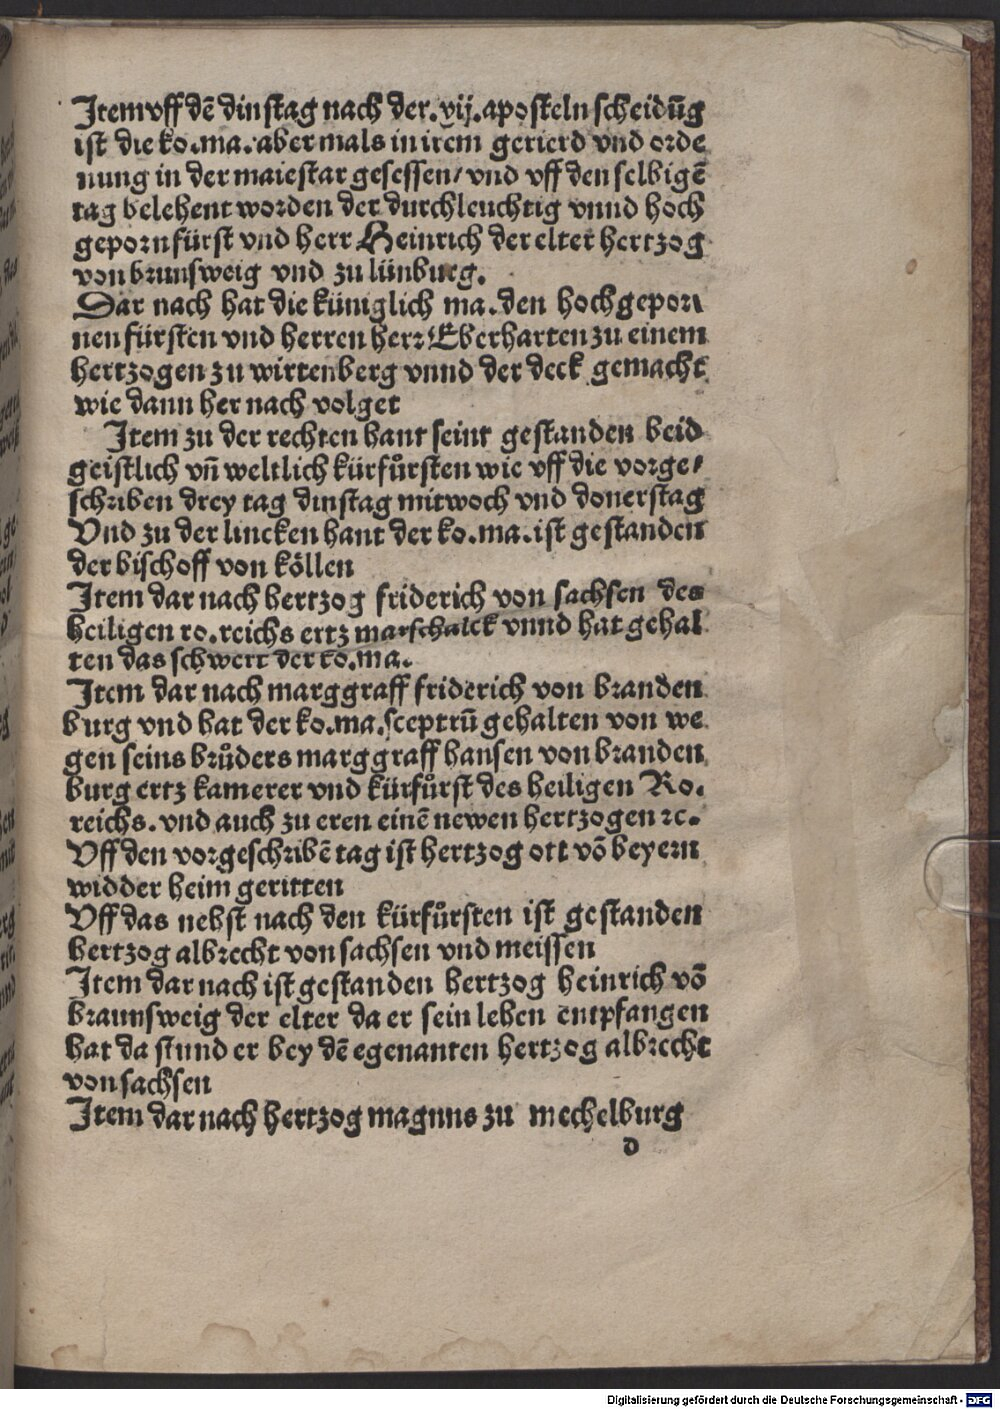 Item vff dē dinstag nach der .xij. aposteln scheidūg
ist die ko. ma. abermals in irem gezierd vnd orde
nung in der maiestat gesessen / vnd vff den selbigē
tag belehent worden der durchleuchtig vnnd hoch
geporn fürst vnd herr Heinrich der elter hertzog
von brunsweig vnd zu lünburg.
Dar nach hat die küniglich ma. den hochgepor
nen fürsten vnd herren herr Eberharten zu einem
hertzogen zu wirtenberg vnnd der deck gemacht
wie dann her nach volget
Item zu der rechten hant seint gestanden beid
geistlich vñ weltlich kürfůrsten wie vff die vorge /
schriben drey tag dinstag mitwoch vnd donerstag
Vnd zu der lincken hant der ko. ma. ist gestanden
der bischoff von köllen
Item dar nach hertzog friderich von sachsen des
heiligen ro. reichs ertz marschalck vnnd hat gehal
ten das schwert der ko. ma.
Item dar nach marggraff friderich von branden
burg vnd hat der ko. ma. sceptrū gehalten von we
gen seins brůders marggraff hansen von branden
burg ertz kamerer vnd kürfůrst des heiligen Ro.
reichs. vnd auch zu eren einē newen hertzogen ꝛc.
Vff den vorgeschribē tag ist hertzog ott vō beyern
widder heim geritten
Vff das nehst nach den kürfůrsten ist gestanden
hertzog albrecht von sachsen vnd meissen
Item dar nach ist gestanden hertzog heinrich vō
braunsweig der elter da er sein lehen entpfangen
hat da stund er bey dē egenanten hertzog albrecht
von sachsen
Item dar nach hertzog magnus zu mechelburg
d
Digitalisierung gefördert durch die Deutsche Forschungsgemeinschaft - DFG